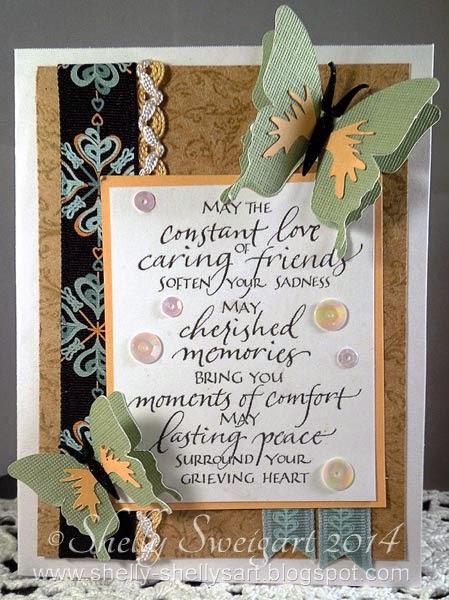 MAY THE
constant love
OF
caring friends
SOFTEN YOUR SADNESS
MAY
cherished
memories
BRING YOU
moments of comfort
MAY
lasting peace
SURROUND YOUR
GRIEVING HEART
© Shelly Sweigart 2014
www.shelly-shellysart.blogspot.com